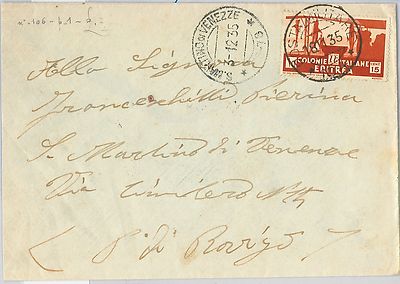 n° 106 - b.1 -
S. MARTINO DI VENEZZE
3.12.35
POSTA MILITARE
35
COLONIE ITALIANE
ERITREA
CENT 15
Alla Signora
Franceschetti Pierina
S. Martino di Venezze
Via Cimitero N° 4
( P. di Rovigo )